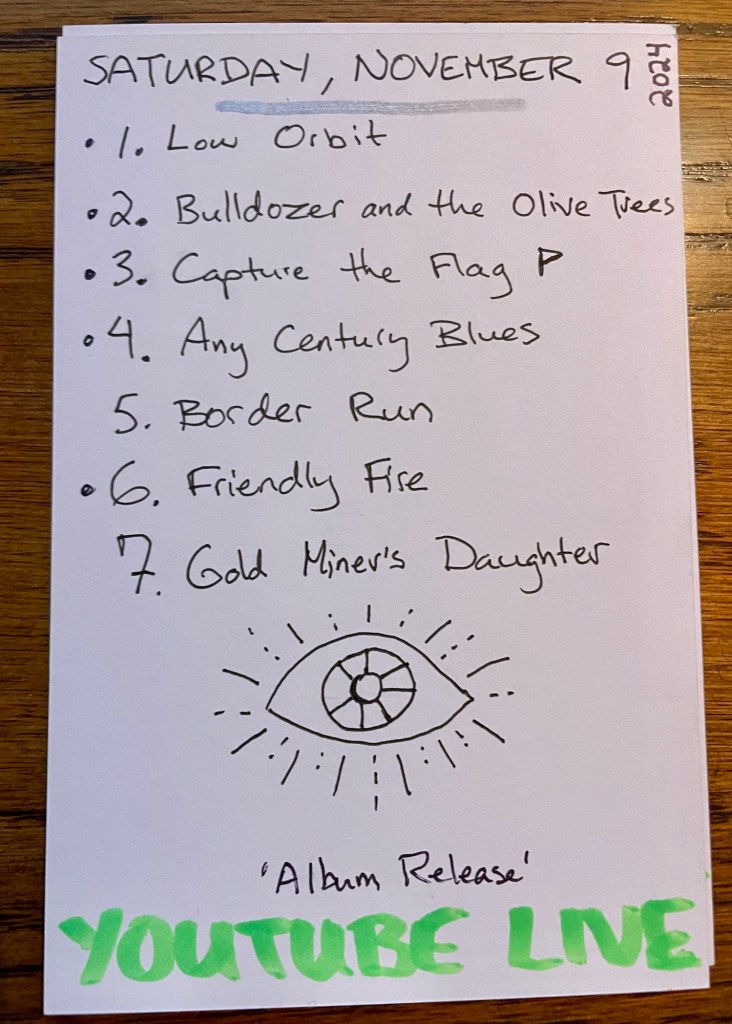 SATURDAY, NOVEMBER 9
2024
• 1. Low Orbit
• 2. Bulldozer and the Olive Trees
• 3. Capture the Flag P
• 4. Any Century Blues
5. Border Run
• 6. Friendly Fire
7. Gold Miner's Daughter
'Album Release'
YOUTUBE LIVE